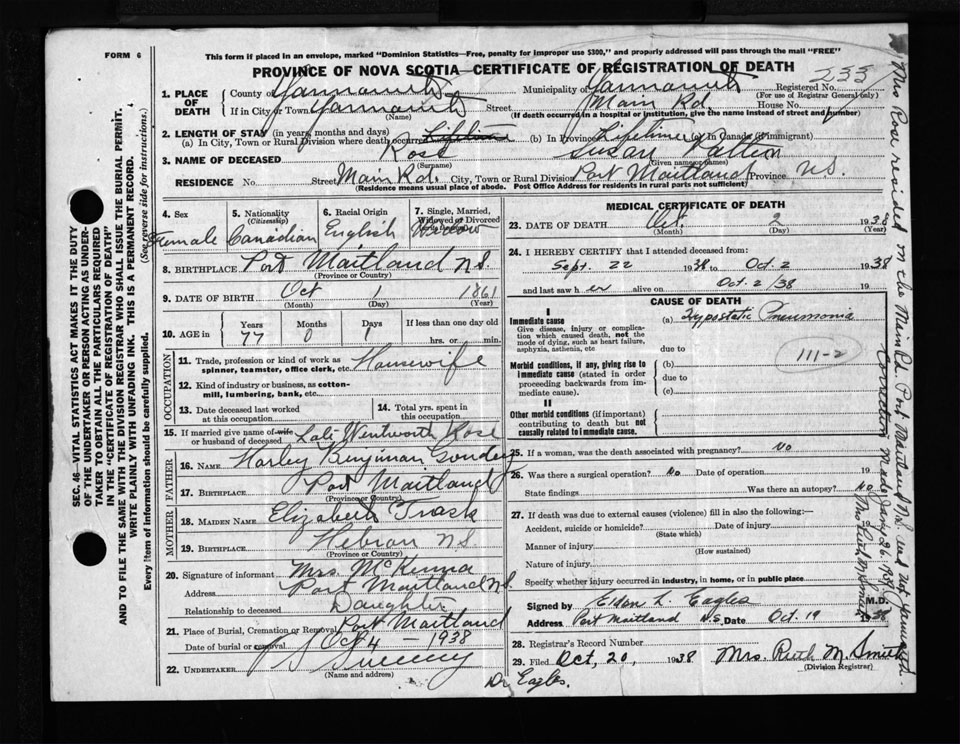 FORM 6
This form if placed in an envelope, marked "Dominion Statistics—Free, penalty for improper use $300," and properly addressed will pass through the mail "FREE"
PROVINCE OF NOVA SCOTIA—CERTIFICATE OF REGISTRATION OF DEATH
233
1. PLACE OF DEATH County of Yarmouth Municipality of Yarmouth Registered No. (For use of Registrar General only)
If in City or Town Yarmouth (Name) Street Main Rd. House No.
(If death occurred in a hospital or institution, give the name instead of street and number)
2. LENGTH OF STAY (in years, months and days)
(a) In City, Town or Rural Division where death occurred Lifetime (b) In Province Lifetime (c) In Canada (if immigrant)
3. NAME OF DECEASED Rose (Surname) Susan Patten (Given name or names)
RESIDENCE No. Street Main Rd. City, Town or Rural Division Port Maitland Province N.S.
(Residence means usual place of abode. Post Office Address for residents in rural parts not sufficient)
4. Sex Female
5. Nationality (Citizenship) Canadian
6. Racial Origin English
7. Single, Married, Widowed or Divorced Widow
8. BIRTHPLACE Port Maitland N.S.
(Province or Country)
9. DATE OF BIRTH Oct 1 1861
(Month) (Day) (Year)
10. AGE in Years 77 Months 0 Days 1 If less than one day old hrs. or min.
OCCUPATION
11. Trade, profession or kind of work as spinner, teamster, office clerk, etc. Housewife
12. Kind of industry or business, as cotton-mill, lumbering, bank, etc.
13. Date deceased last worked at this occupation
14. Total yrs. spent in this occupation
15. If married give name of wife or husband of deceased Wentworth Rose
FATHER
16. NAME Harley
17. BIRTHPLACE Port Maitland
(Province or Country)
MOTHER
18. MAIDEN NAME Elizabeth Trask
19. BIRTHPLACE Hebron N.S.
(Province or Country)
20. Signature of informant Mrs. McKinna
Address Port Maitland N.S.
Relationship to deceased Daughter
21. Place of Burial, Cremation or Removal Port Maitland
Date of burial or removal Oct 4 – 1938
22. UNDERTAKER Sweeny
(Name and address)
MEDICAL CERTIFICATE OF DEATH
23. DATE OF DEATH Oct. 2 1938
(Month) (Day) (Year)
24. I HEREBY CERTIFY that I attended deceased from:
Sept. 22 1938 to Oct. 2 1938
and last saw her alive on Oct. 2/38 19
CAUSE OF DEATH
I
Immediate cause (a) Hypostatic Pneumonia
Give disease, injury or complication which caused death, not the mode of dying, such as heart failure, asphyxia, asthenia, etc
due to
111-2
Morbid conditions, if any, giving rise to immediate cause (stated in order proceeding backwards from immediate cause)
(b)
due to
(c)
II
Other morbid conditions (if important) contributing to death but not causally related to immediate cause.
25. If a woman, was the death associated with pregnancy? No
26. Was there a surgical operation? No Date of operation 19
State findings Was there an autopsy? No
27. If death was due to external causes (violence) fill in also the following:—
Accident, suicide or homicide? Date of injury 19
(State which)
Manner of injury
(How sustained)
Nature of injury
Specify whether injury occurred in industry, in home, or in public place
Signed by Eldon L. Eagles M.D.
Address Port Maitland N.S. Date Oct. 19 1938
28. Registrar's Record Number
29. Filed Oct, 20, 1938 Mrs. Ruth M. Smith
(Division Registrar)
Dr Eagles.
SEC. 46—VITAL STATISTICS ACT MAKES IT THE DUTY
OF THE UNDERTAKER OR PERSON ACTING AS UNDER-
TAKER TO OBTAIN ALL THE PARTICULARS REQUIRED
IN THE "CERTIFICATE OF REGISTRATION OF DEATH"
AND TO FILE THE SAME WITH THE DIVISION REGISTRAR WHO SHALL ISSUE THE BURIAL PERMIT.
WRITE PLAINLY WITH UNFADING INK. THIS IS A PERMANENT RECORD.
Every item of information should be carefully supplied. (See reverse side for instructions.)
Mrs Rose resided on the Main Rd. Port Maitland N.S. and not Yarmouth.
Correction made